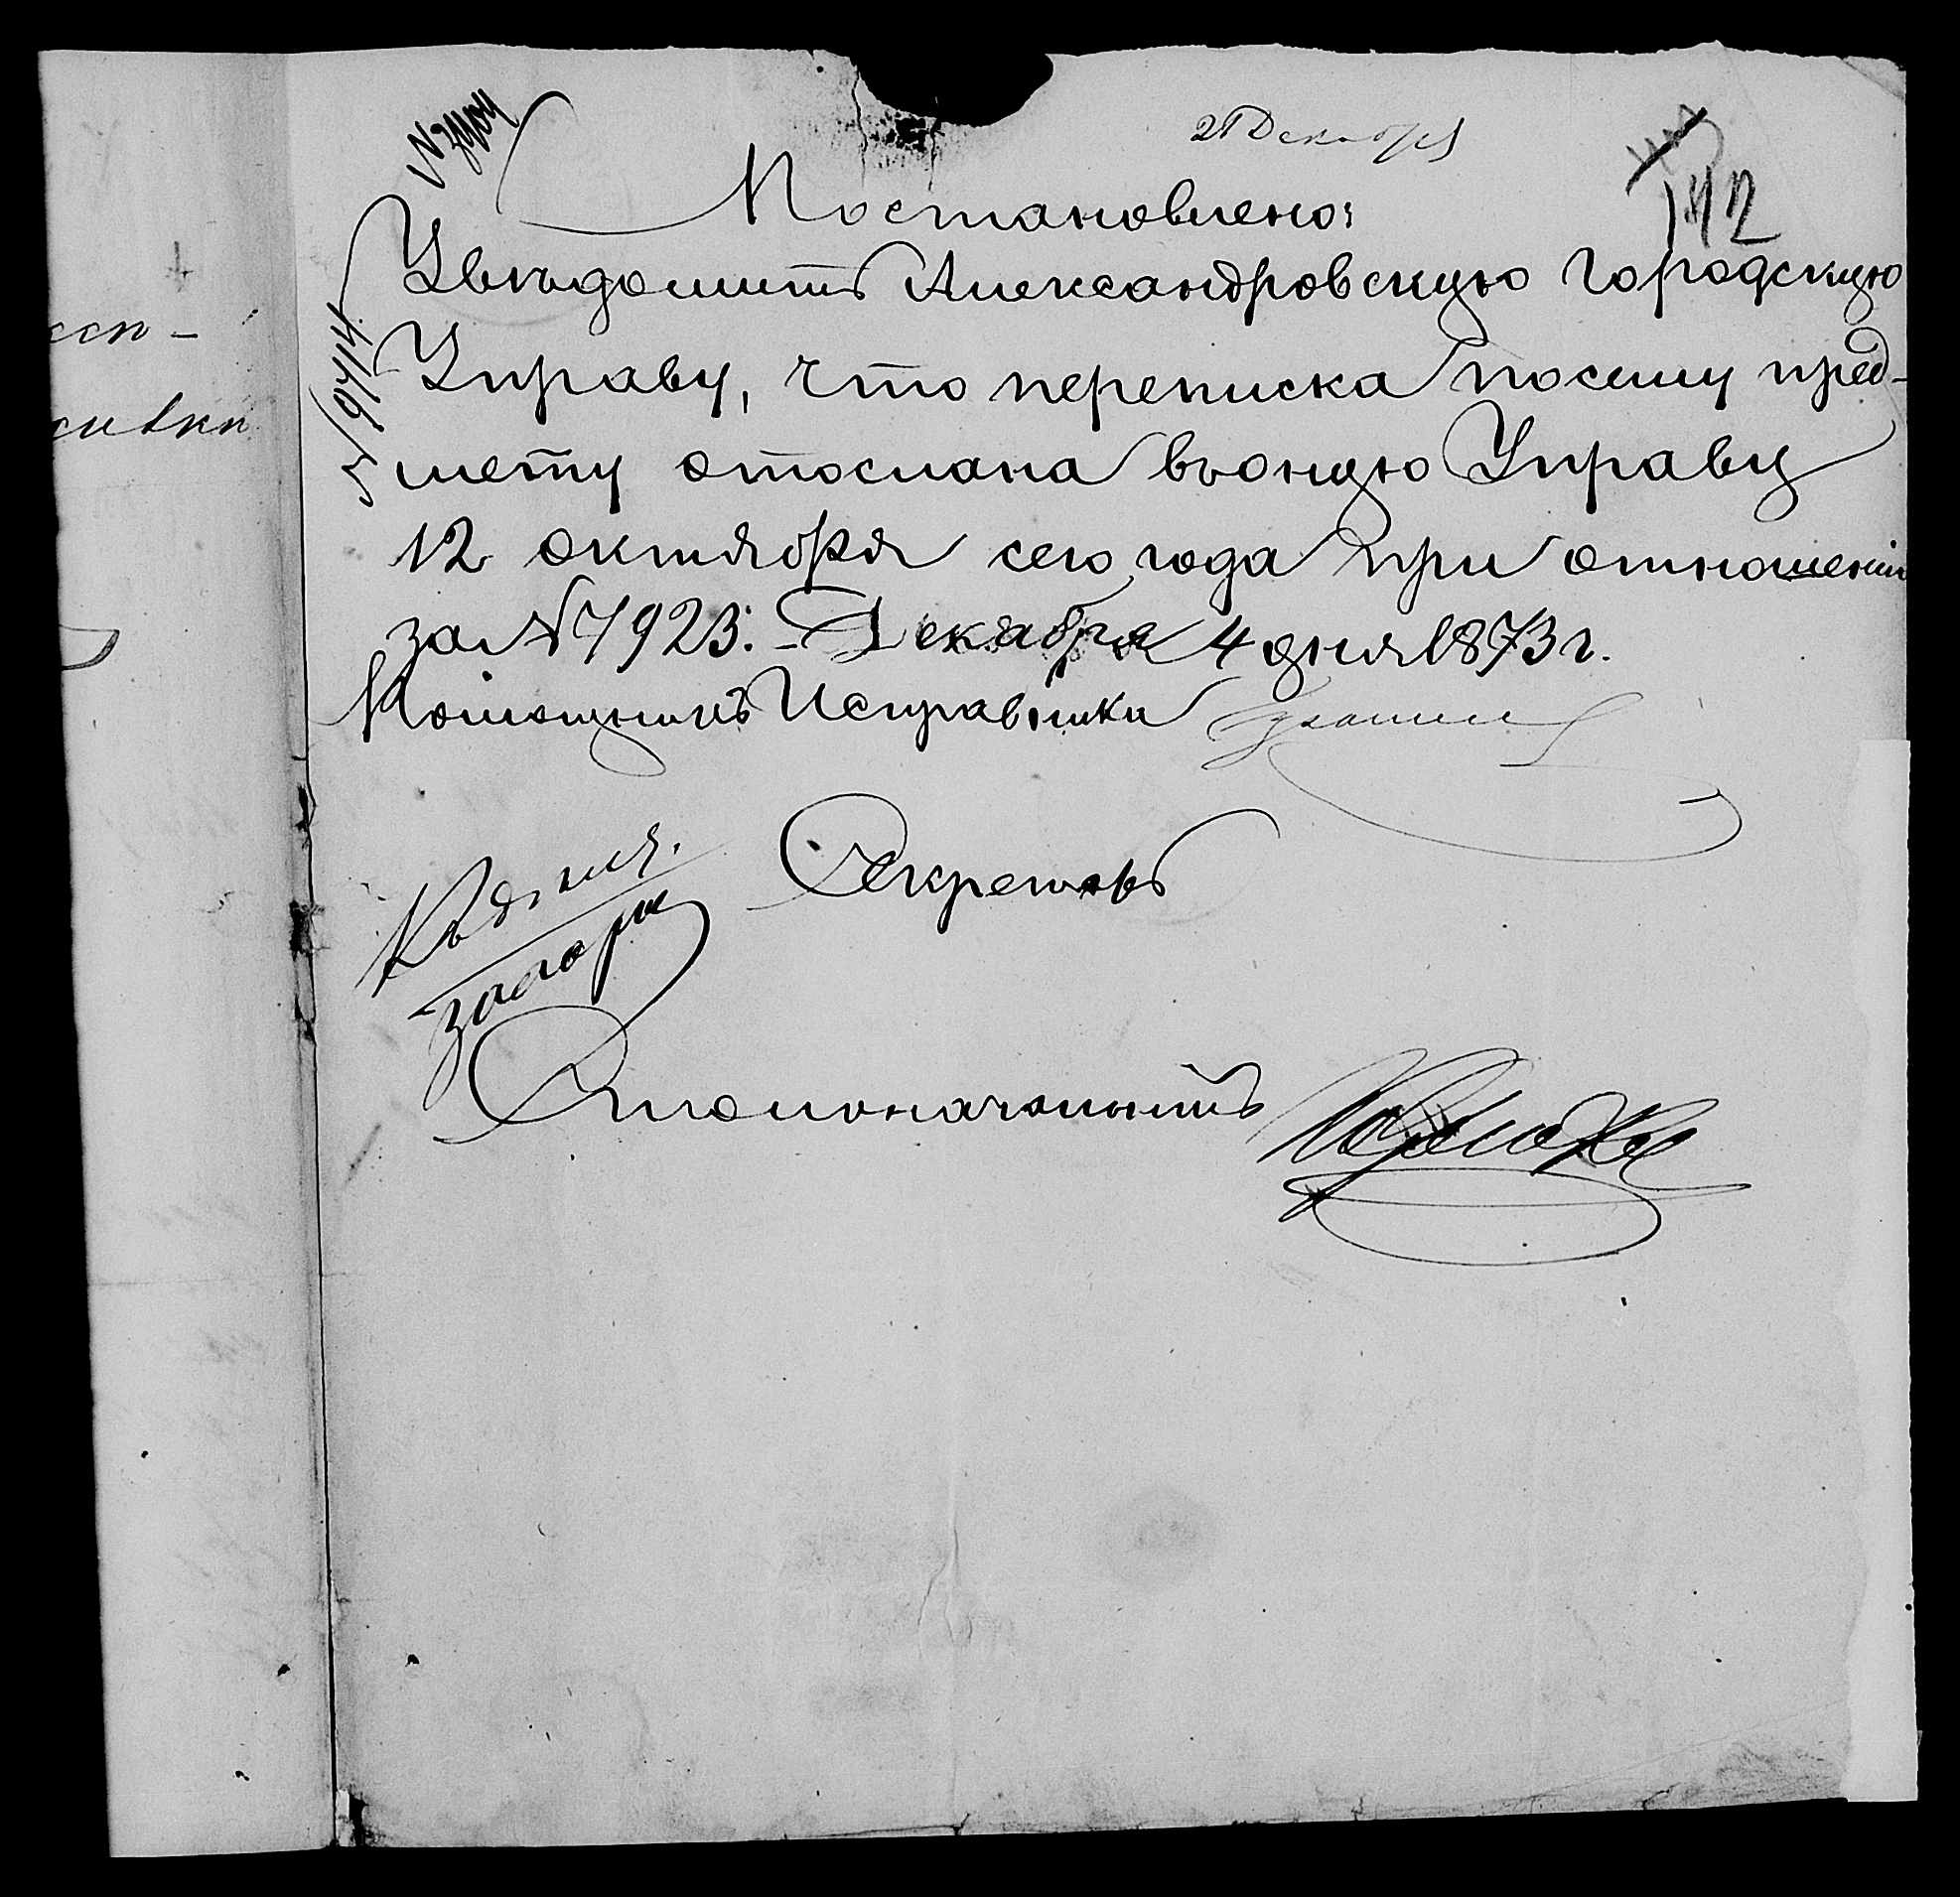 21 Декабря
142
Постановлено:
Увѣдомить Александровскую Городскую
Управу, что переписка посему пред-
мету отослана въ оную Управу
12 октября сего года при отношеніи
за № 7923. – Декабря 4 дня 1873 г.
Помощникъ Исправника
№ 9414
Секретарь
Къ дѣлу
Столоначальникъ